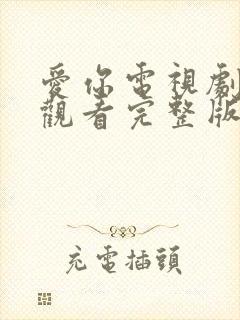 愛你電視劇
觀看完整版
充電插頭